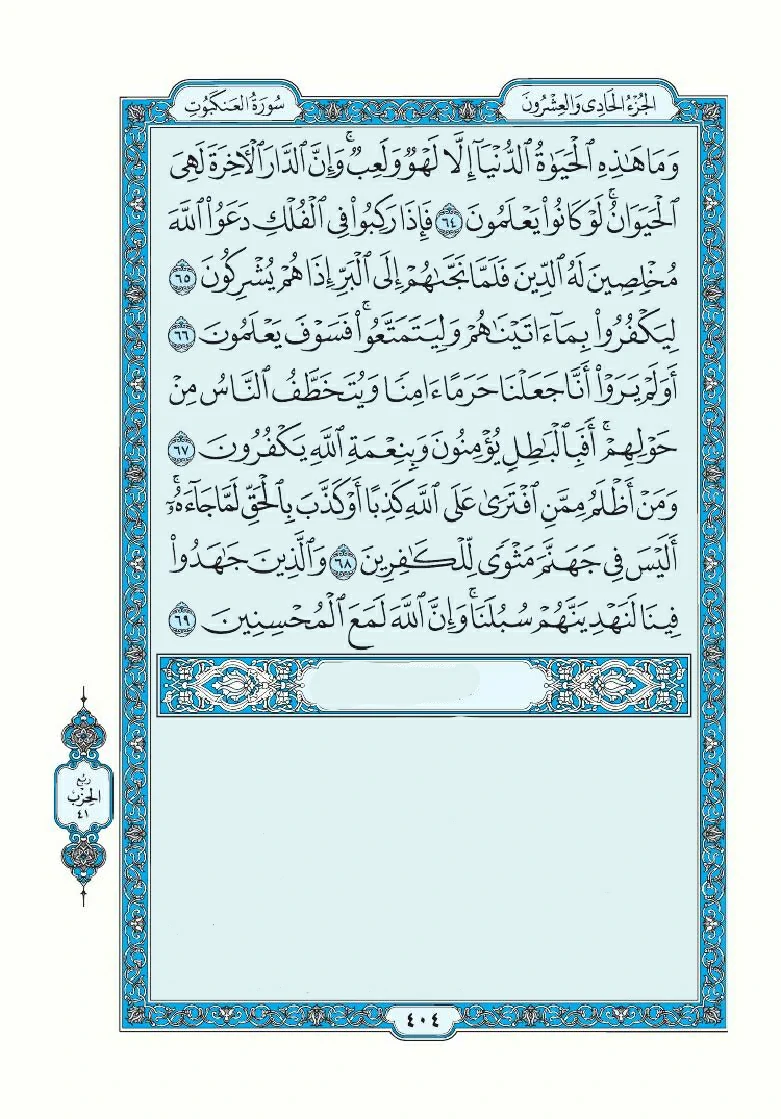 الجُزْءُ الحَادِى وَالعِشْرُونَ
سُورَةُ العَنكَبُوتِ
وَمَا هَٰذِهِ ٱلْحَيَوٰةُ ٱلدُّنْيَآ إِلَّا لَهْوٌ وَلَعِبٌ ۚ وَإِنَّ ٱلدَّارَ ٱلْأٓخِرَةَ لَهِىَ
ٱلْحَيَوَانُ ۚ لَوْ كَانُوا۟ يَعْلَمُونَ ٦٤ فَإِذَا رَكِبُوا۟ فِى ٱلْفُلْكِ دَعَوُا۟ ٱللَّهَ
مُخْلِصِينَ لَهُ ٱلدِّينَ فَلَمَّا نَجَّىٰهُمْ إِلَى ٱلْبَرِّ إِذَا هُمْ يُشْرِكُونَ ٦٥
لِيَكْفُرُوا۟ بِمَآ ءَاتَيْنَٰهُمْ وَلِيَتَمَتَّعُوا۟ ۚ فَسَوْفَ يَعْلَمُونَ ٦٦
أَوَلَمْ يَرَوْا۟ أَنَّا جَعَلْنَا حَرَمًا ءَامِنًا وَيُتَخَطَّفُ ٱلنَّاسُ مِنْ
حَوْلِهِمْ ۚ أَفَبِٱلْبَٰطِلِ يُؤْمِنُونَ وَبِنِعْمَةِ ٱللَّهِ يَكْفُرُونَ ٦٧
وَمَنْ أَظْلَمُ مِمَّنِ ٱفْتَرَىٰ عَلَى ٱللَّهِ كَذِبًا أَوْ كَذَّبَ بِٱلْحَقِّ لَمَّا جَآءَهُۥٓ ۚ
أَلَيْسَ فِى جَهَنَّمَ مَثْوًى لِّلْكَٰفِرِينَ ٦٨ وَٱلَّذِينَ جَٰهَدُوا۟
فِينَا لَنَهْدِيَنَّهُمْ سُبُلَنَا ۚ وَإِنَّ ٱللَّهَ لَمَعَ ٱلْمُحْسِنِينَ ٦٩
رُبُع
الحِزْب
٤١
٤٠٤